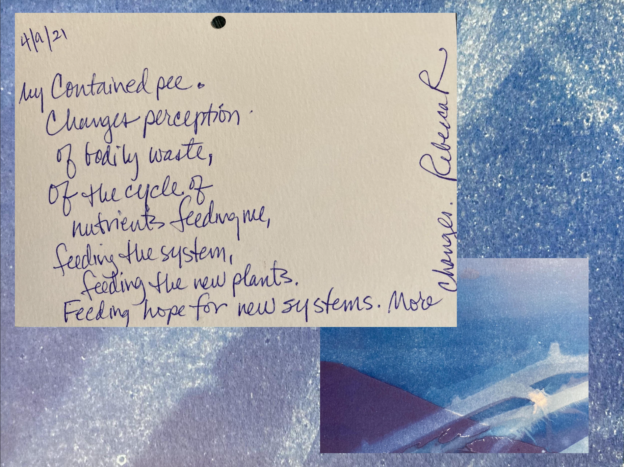 4/9/21
My Contained pee.
Changes perception
of bodily waste,
of the cycle of
nutrients feeding me,
feeding the system,
feeding the new plants.
Feeding hope for new systems. More
changes. Rebecca R